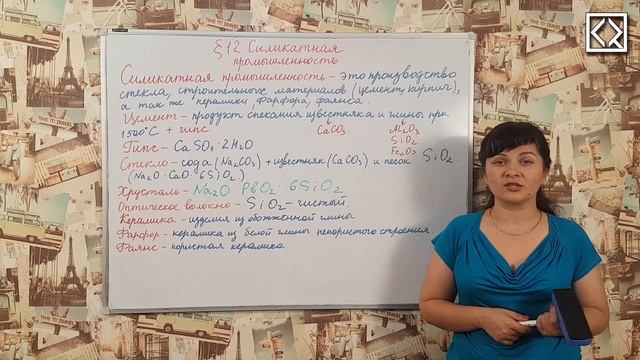 §12 Силикатная
промышленность
Силикатная промышленность – это производство
стекла, строительных материалов (цемент, кирпич),
а так же керамики, фарфора, фаянса.
Цемент – продукт спекания известняка и глины при
1500°C + гипс CaCO3 Al2O3
SiO2
Fe2O3
Гипс – CaSO4·2H2O
Стекло – сода (Na2CO3) + известняк (CaCO3) и песок SiO2.
(Na2O·CaO·6SiO2)
Хрусталь – Na2O·PbO2·6SiO2
Оптическое волокно – SiO2 – чистый.
Керамика – изделия из обожжённой глины
Фарфор – керамика из белой глины непористого строения
Фаянс – пористая керамика
TIME TO TRAVEL